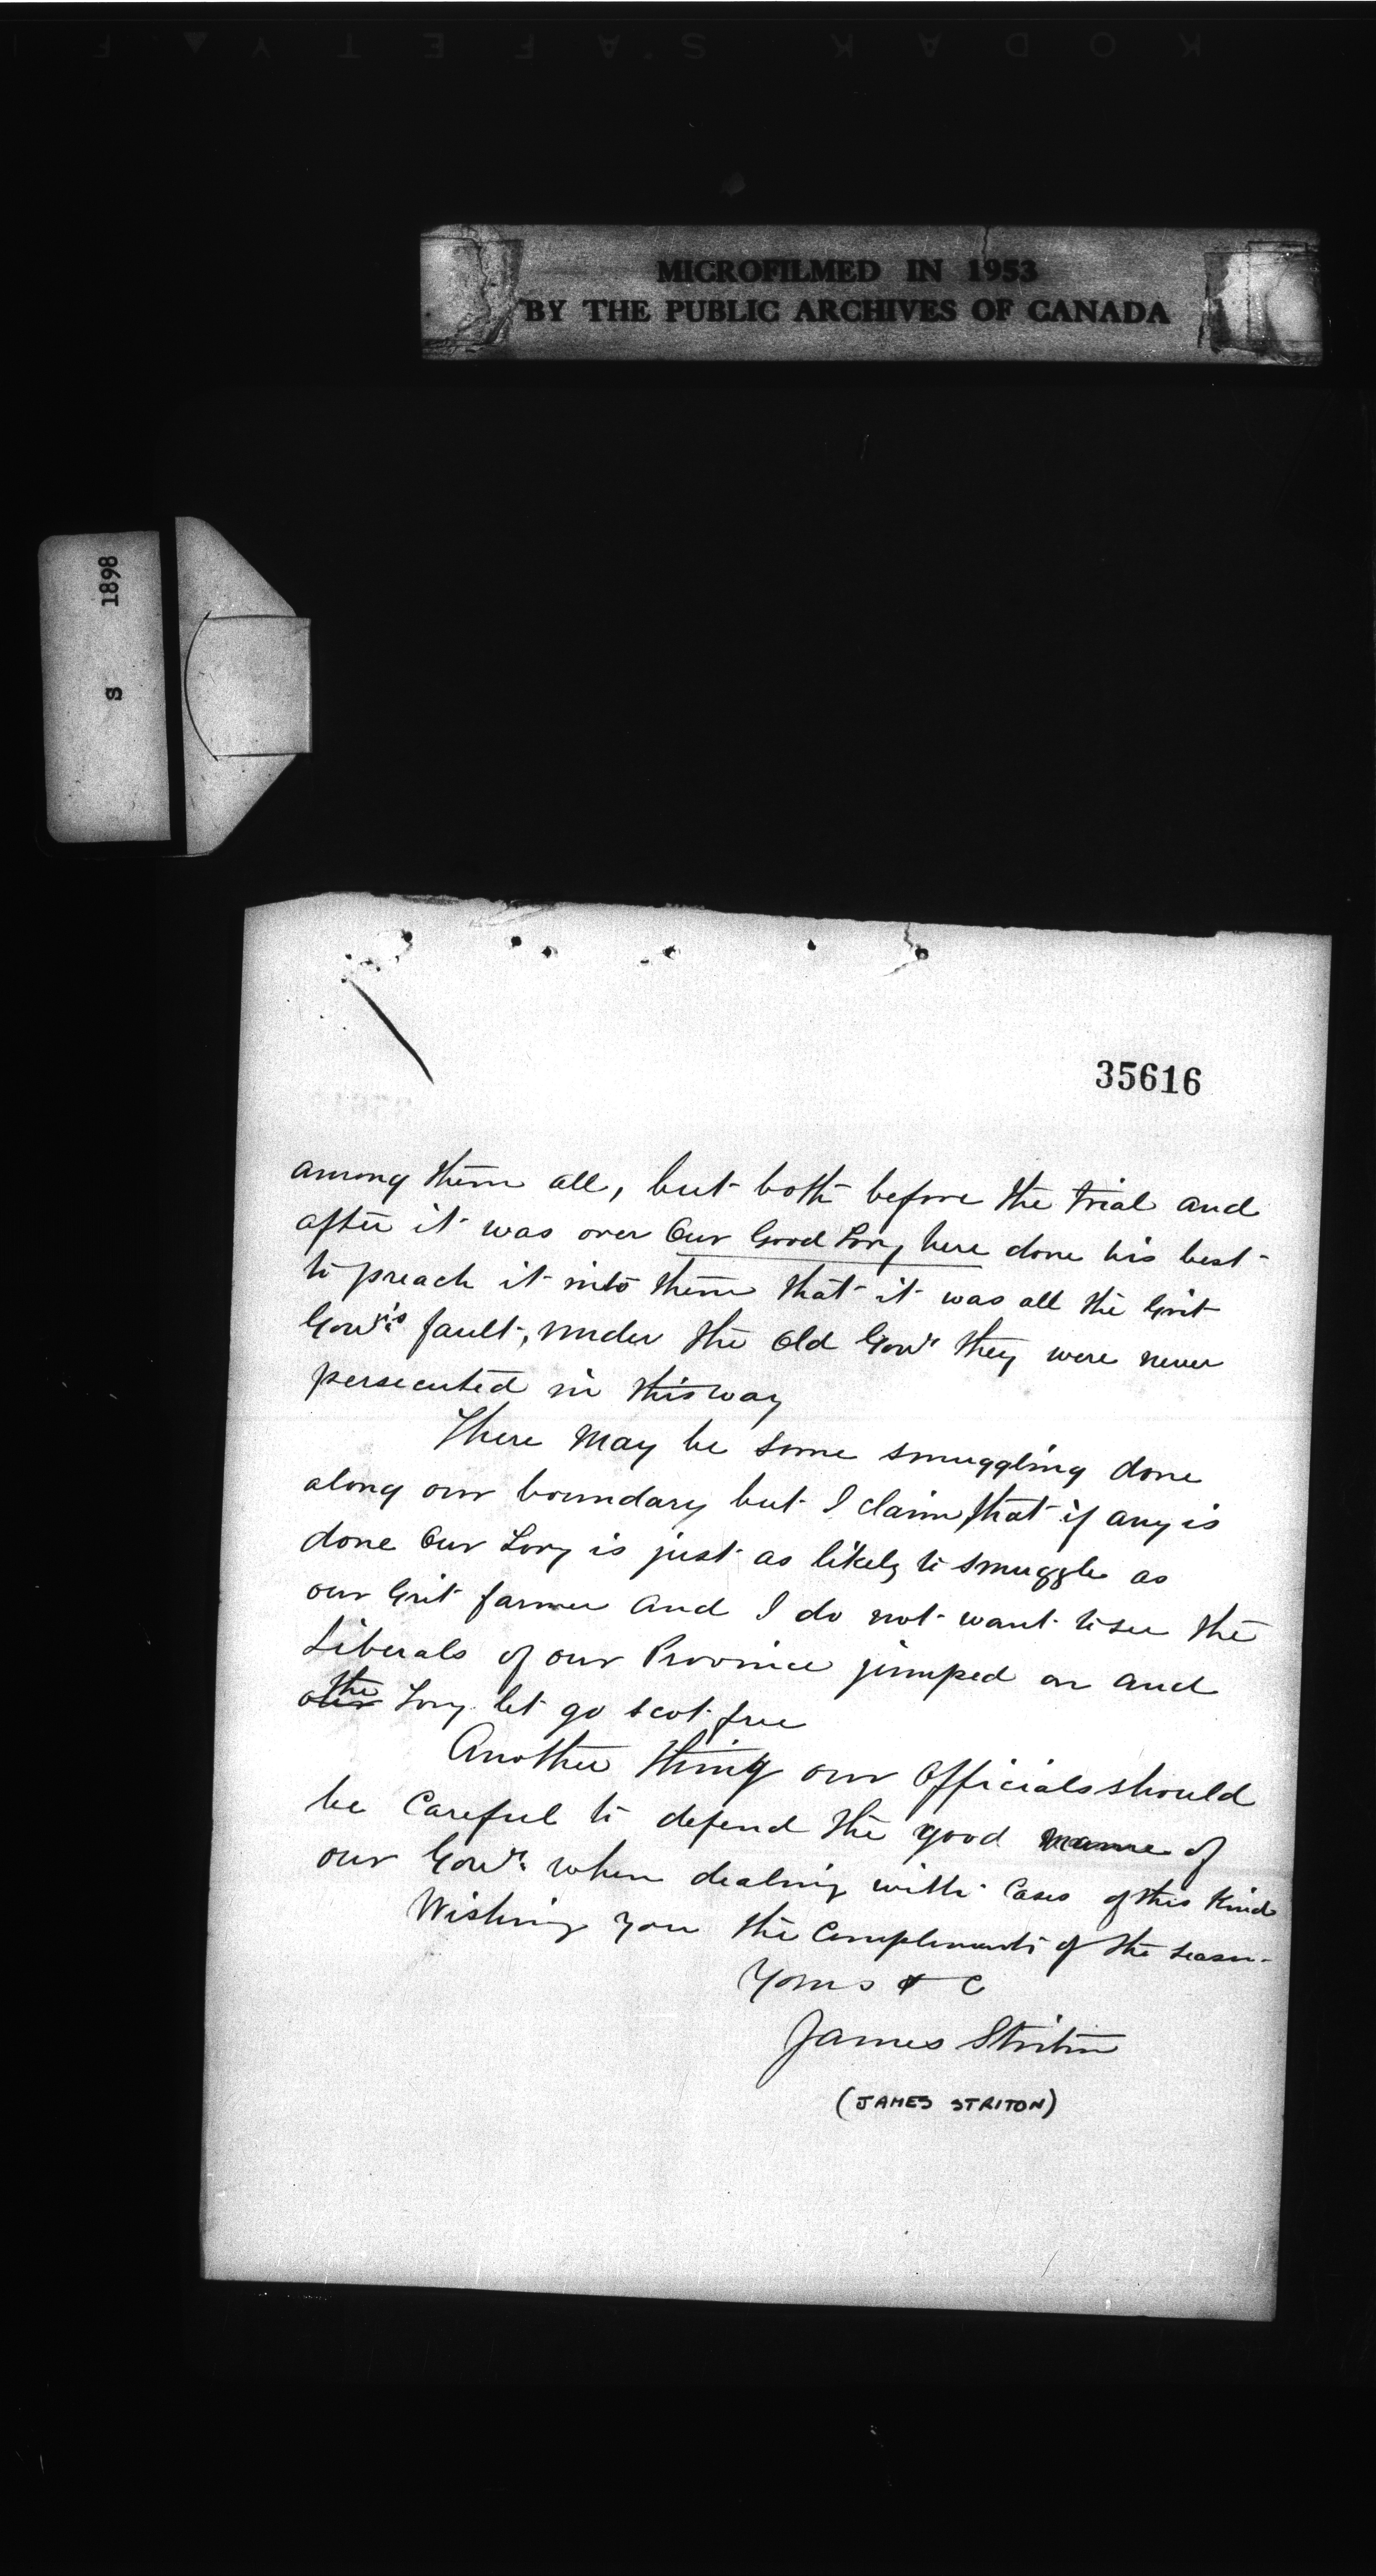 KODAK SAFETY
MICROFILMED IN 1953
BY THE PUBLIC ARCHIVES OF CANADA
S 1898
35616
among them all, but both before the trial and
after it was over Our Good Tory here done his best
to preach it into them that it was all the Grit
Govt's fault, under the Old Govt they were never
persecuted in this way
There may be some smuggling done
along our boundary but I claim that if any is
done Our Tory is just as likely to smuggle as
our Grit farmer and I do not want to see the
Liberals of our Province jumped on and
the Tory let go scot free
Another thing our Officials should
be Careful to defend the good name of
our Govt. when dealing with Cases of this Kind
Wishing you the Compliments of the season
Yours & C
James Striton
(JAMES STRITON)